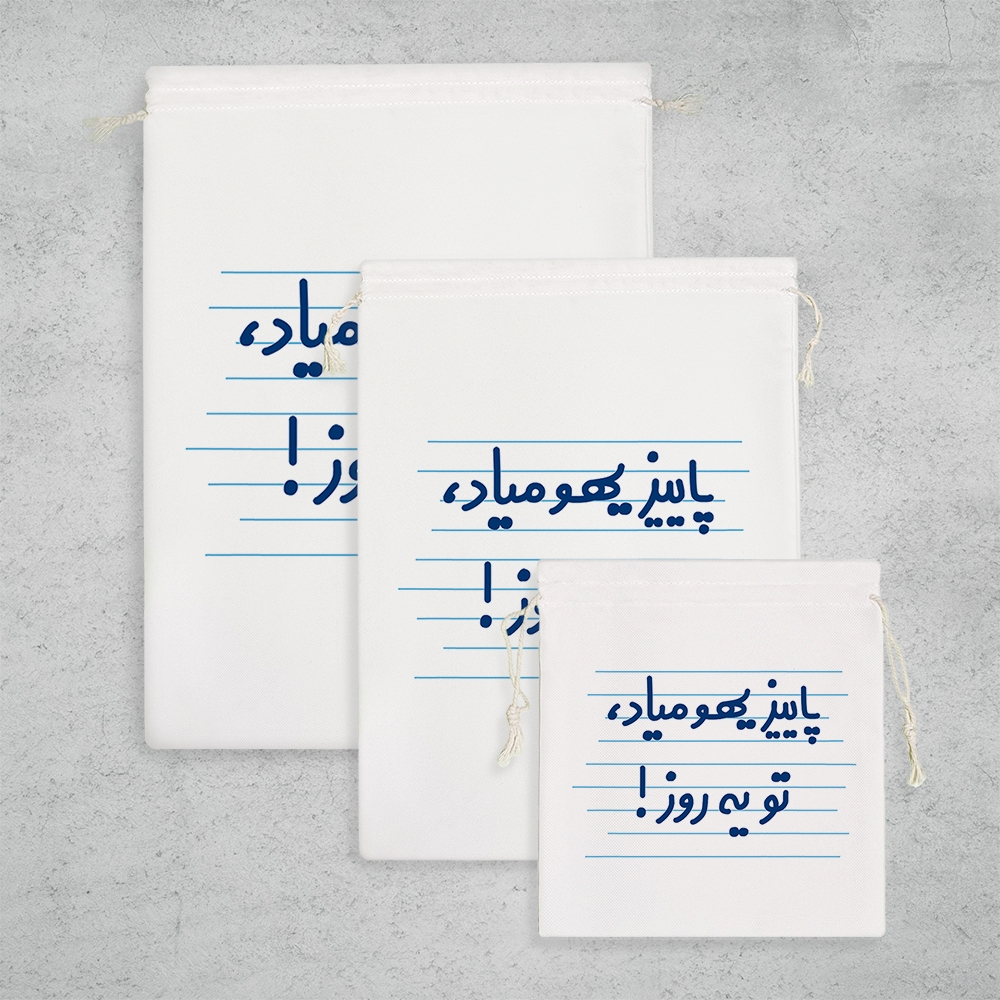 میاد،
وز!
پاییز یهو میاد،
وز!
پاییز یهو میاد،
تو یه روز!